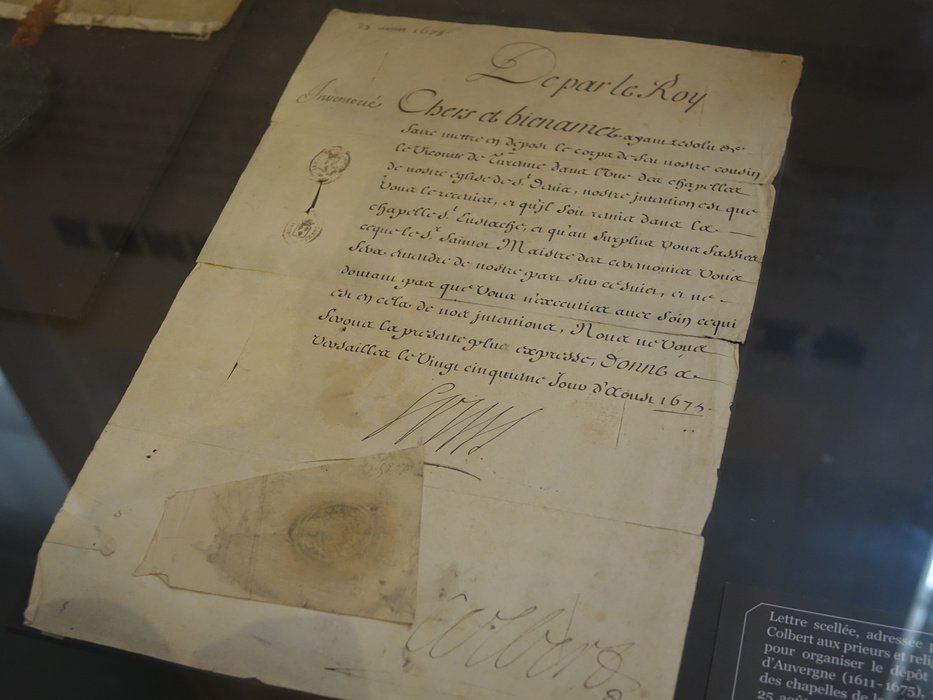 25 aoust 1675
De par le Roy
Inventorié
Chers et bienamez ayant resolu de
faire mettre en depost le corps de feu nostre cousin
le Vicomte de Turenne dans l'Une des chapelles
de nostre eglise de S.t Denis, nostre jntention est que
Vous le receviez, et qu'jl soit remis dans la
chapelle S.t Eustache, et qu'au surplus Vous fassiez
ce que le S.r Saintot Maistre des ceremonies Vous
fera entendre de nostre part sur ce sujet, et ne
doutant pas que Vous n'executiez avec soin ce qui
est en cela de nos jntentions, Nous ne Vous
ferons la presente plus expresse, Donné a
Versailles le Vingt cinquieme Jour d'Aoust 1675.
Louis
Colbert
Lettre scellée, adressée
Colbert aux prieurs et reli
pour organiser le dépôt
d'Auvergne (1611-1675),
des chapelles de
25 août